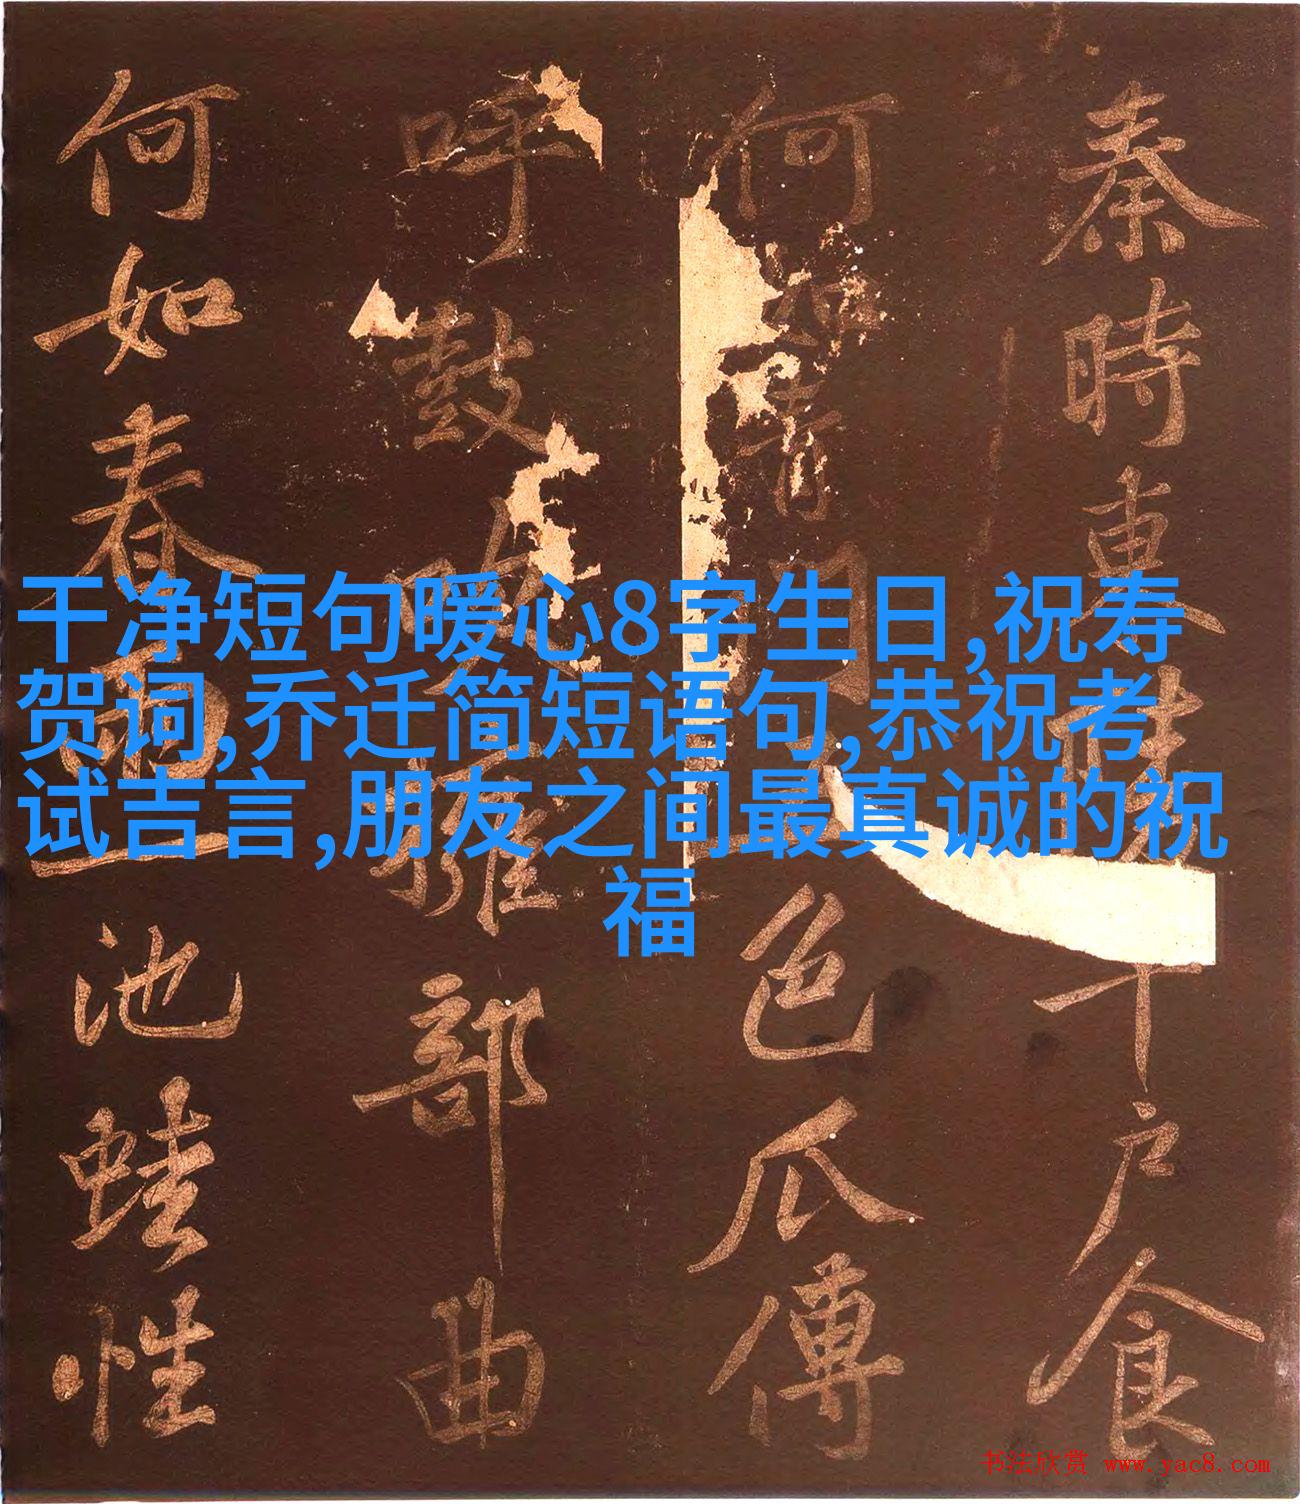 秦時東陵千戶食
何如青門五色瓜傅
呼鼓吹擁部曲
何如春雨一池蛙性
干净短句暖心8字生日,祝寿
贺词,乔迁简短语句,恭祝考
试吉言,朋友之间最真诚的祝
福
书法欣赏 www.yac8.com